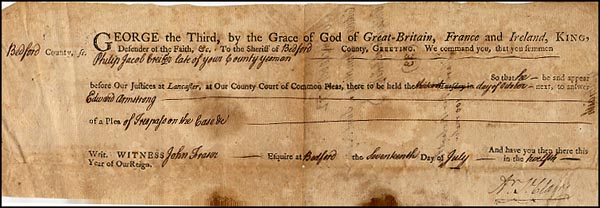 GEORGE the Third, by the Grace of God of Great-Britain, France and Ireland, KING,
Bedford County, sc. Defender of the Faith, &c. To the Sheriff of Bedford County, GREETING. We command you, that you summon
Philip Jacob late of your County yeoman
So that he be and appear
before Our Justices at Lancaster, at Our County Court of Common Pleas, there to be held the day of October next, to answer
Edward Armstrong
of a Plea of Trespass on the Case &c
And have you then there this
Writ. WITNESS John Fraser Esquire at Bedford the Seventeenth Day of July in the twelfth
Year of Our Reign.
Ar. St. Clair